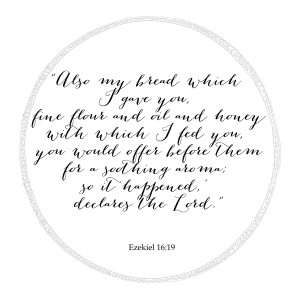 "Also my bread which
I gave you,
fine flour and oil and honey
with which I fed you,
you would offer before them
for a soothing aroma;
so it happened,'
declares the Lord."
Ezekiel 16:19